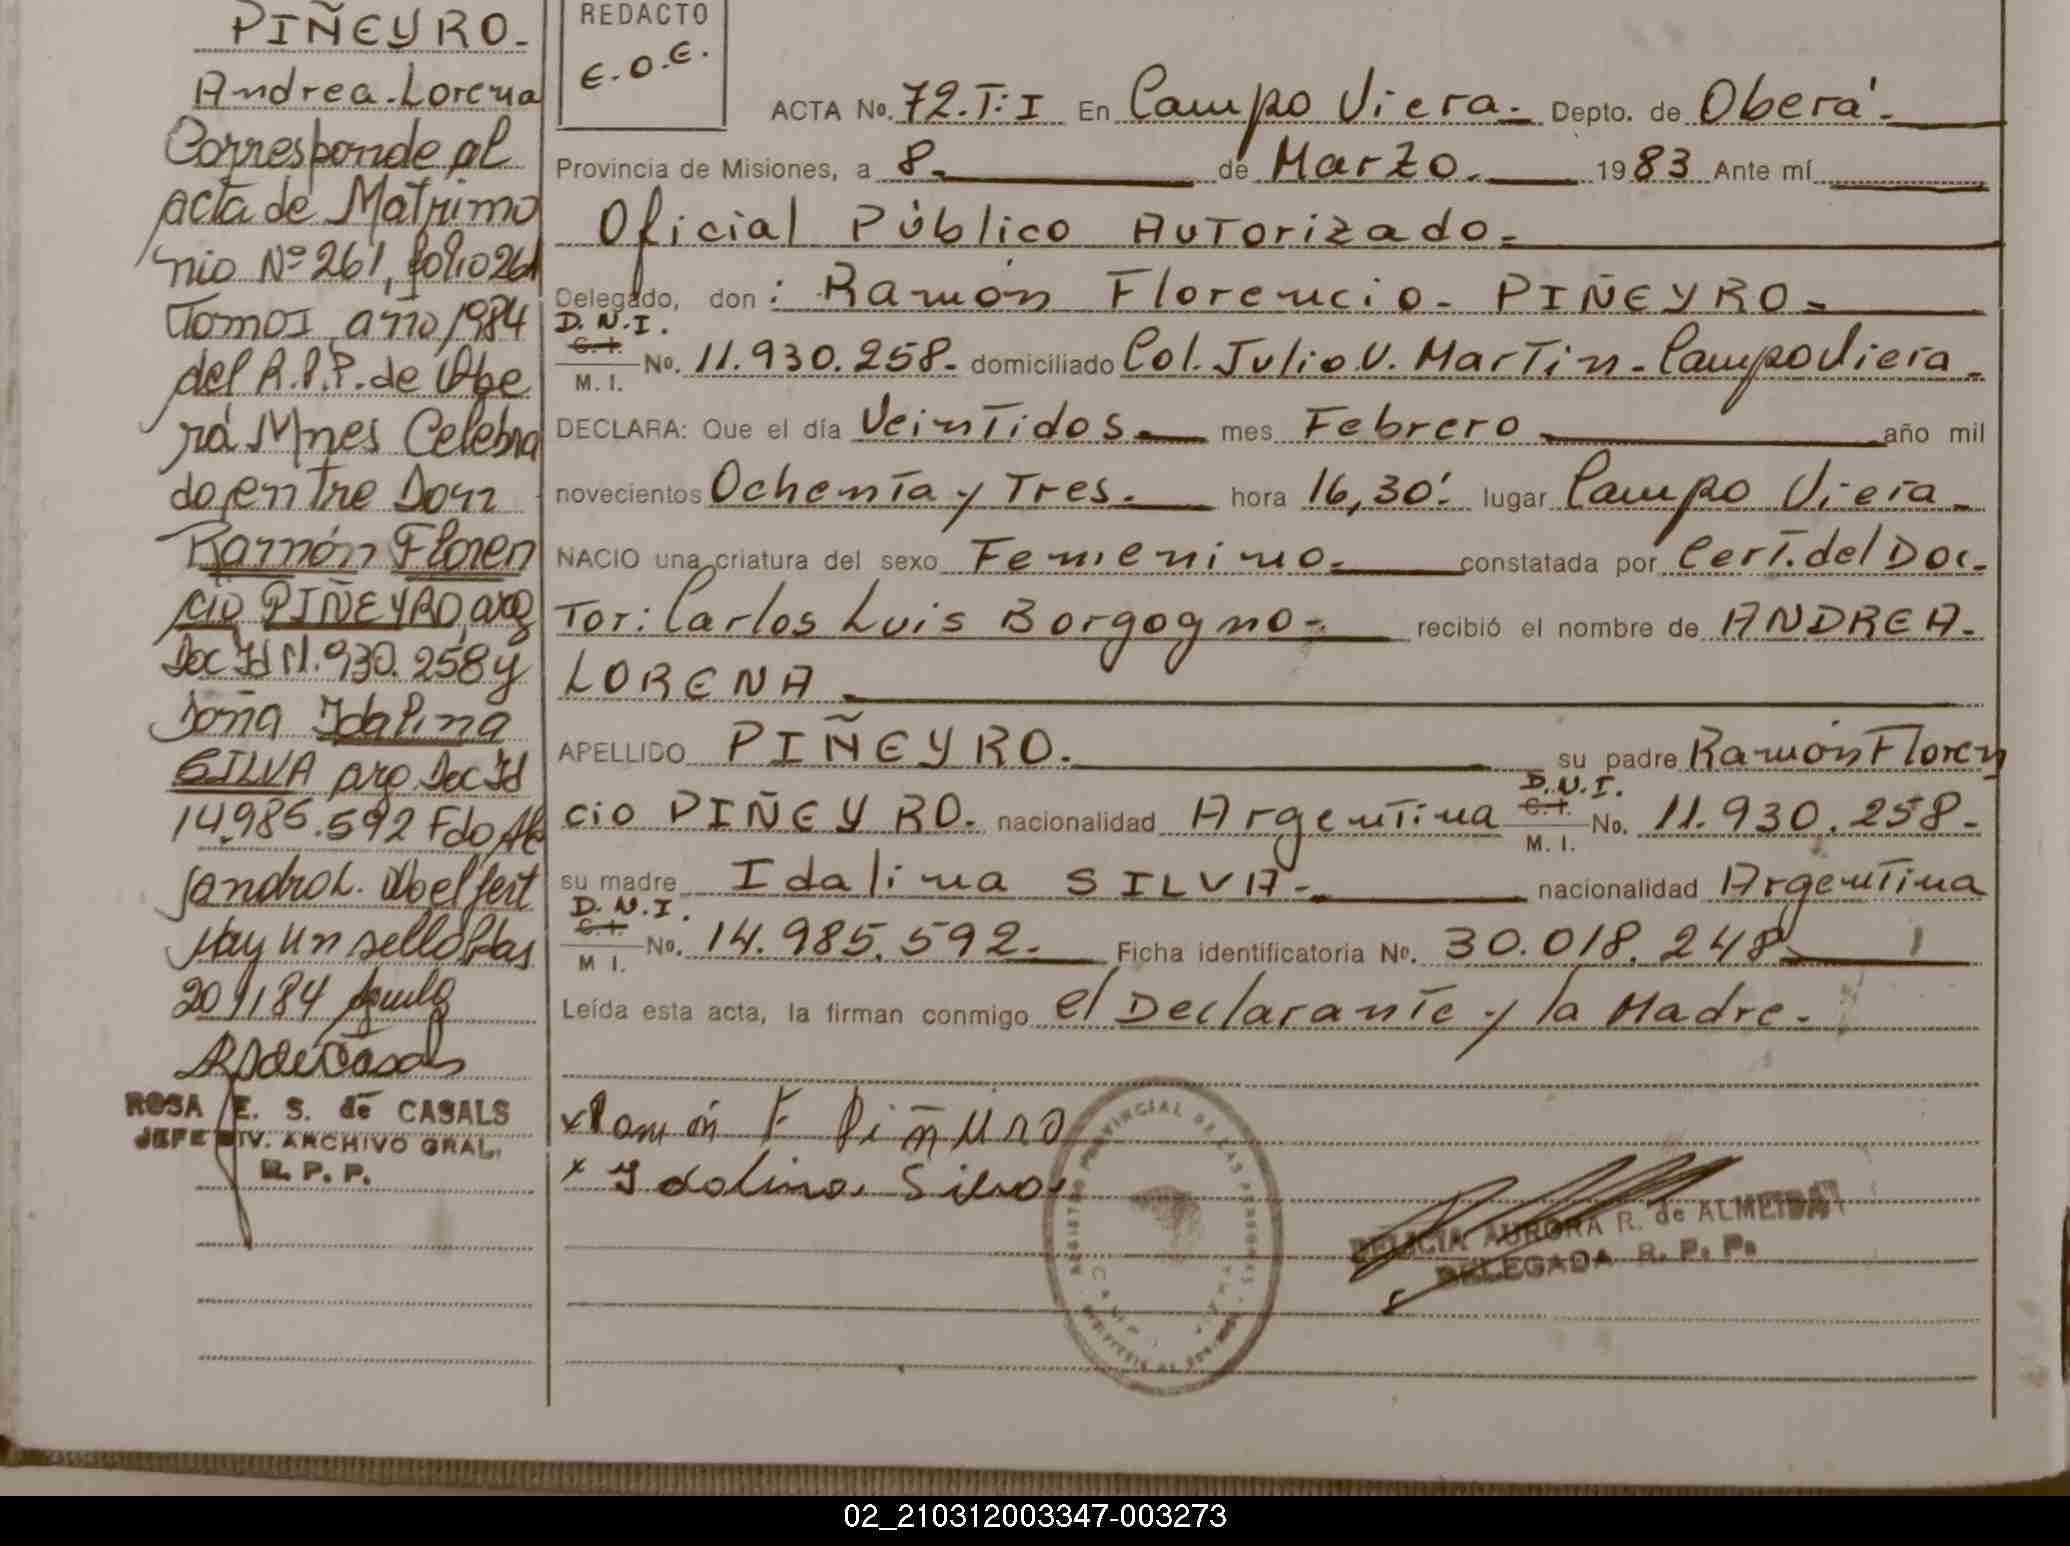 PIÑEYRO-
Andrea-Lorena
Corresponde al
acta de Matrimo
nio Nº 261, folio 261
Tomo I año 1984
del R.P.P. de Obe
rá Mnes Celebra
do entre Don
Ramón Floren
cio PIÑEYRO, arg
Doc Id 11.930.258 y
Doña Idalina
SILVA arg Doc Id
14.985.592 Fdo Ale
jandro L. Woelfert
Hay un sello Pdas
ROSA E. S. de CASALS
JEFE DIV. ARCHIVO GRAL.
R. P. P.
REDACTO
E.O.E.
ACTA No. 72.T:I En Campo Viera.- Depto. de Oberá.-
Provincia de Misiones, a 8.- de Marzo. 1983 Ante mí
Oficial Público Autorizado.-
Delegado, don: Ramón Florencio- PIÑEYRO.-
D.N.I.
C.I.
M. I. No. 11.930.258- domiciliado Col. Julio.U. Martin-Campo Viera.-
DECLARA: Que el día Veintidos.- mes Febrero año mil
novecientos Ochenta y Tres.- hora 16,30'. lugar Campo Viera.-
NACIO una criatura del sexo Femenino.- constatada por Cert. del Doc-
Tor: Carlos Luis Borgogno- recibió el nombre de ANDREA-
LORENA
APELLIDO PIÑEYRO. su padre Ramón Floren
cio PIÑEYRO. nacionalidad Argentina D.N.I. C.I. M. I. No. 11.930.258-
su madre Idalina SILVA- nacionalidad Argentina
D.N.I.
C.I.
M I. No. 14.985.592.- Ficha identificatoria No. 30.018.248
Leída esta acta, la firman conmigo el Declarante y la Madre.-
x Ramón F Piñeiro
x Idalina Silva
DELICIA AURORA R. de ALMEIDA
DELEGADA R. P. P.
02_210312003347-003273